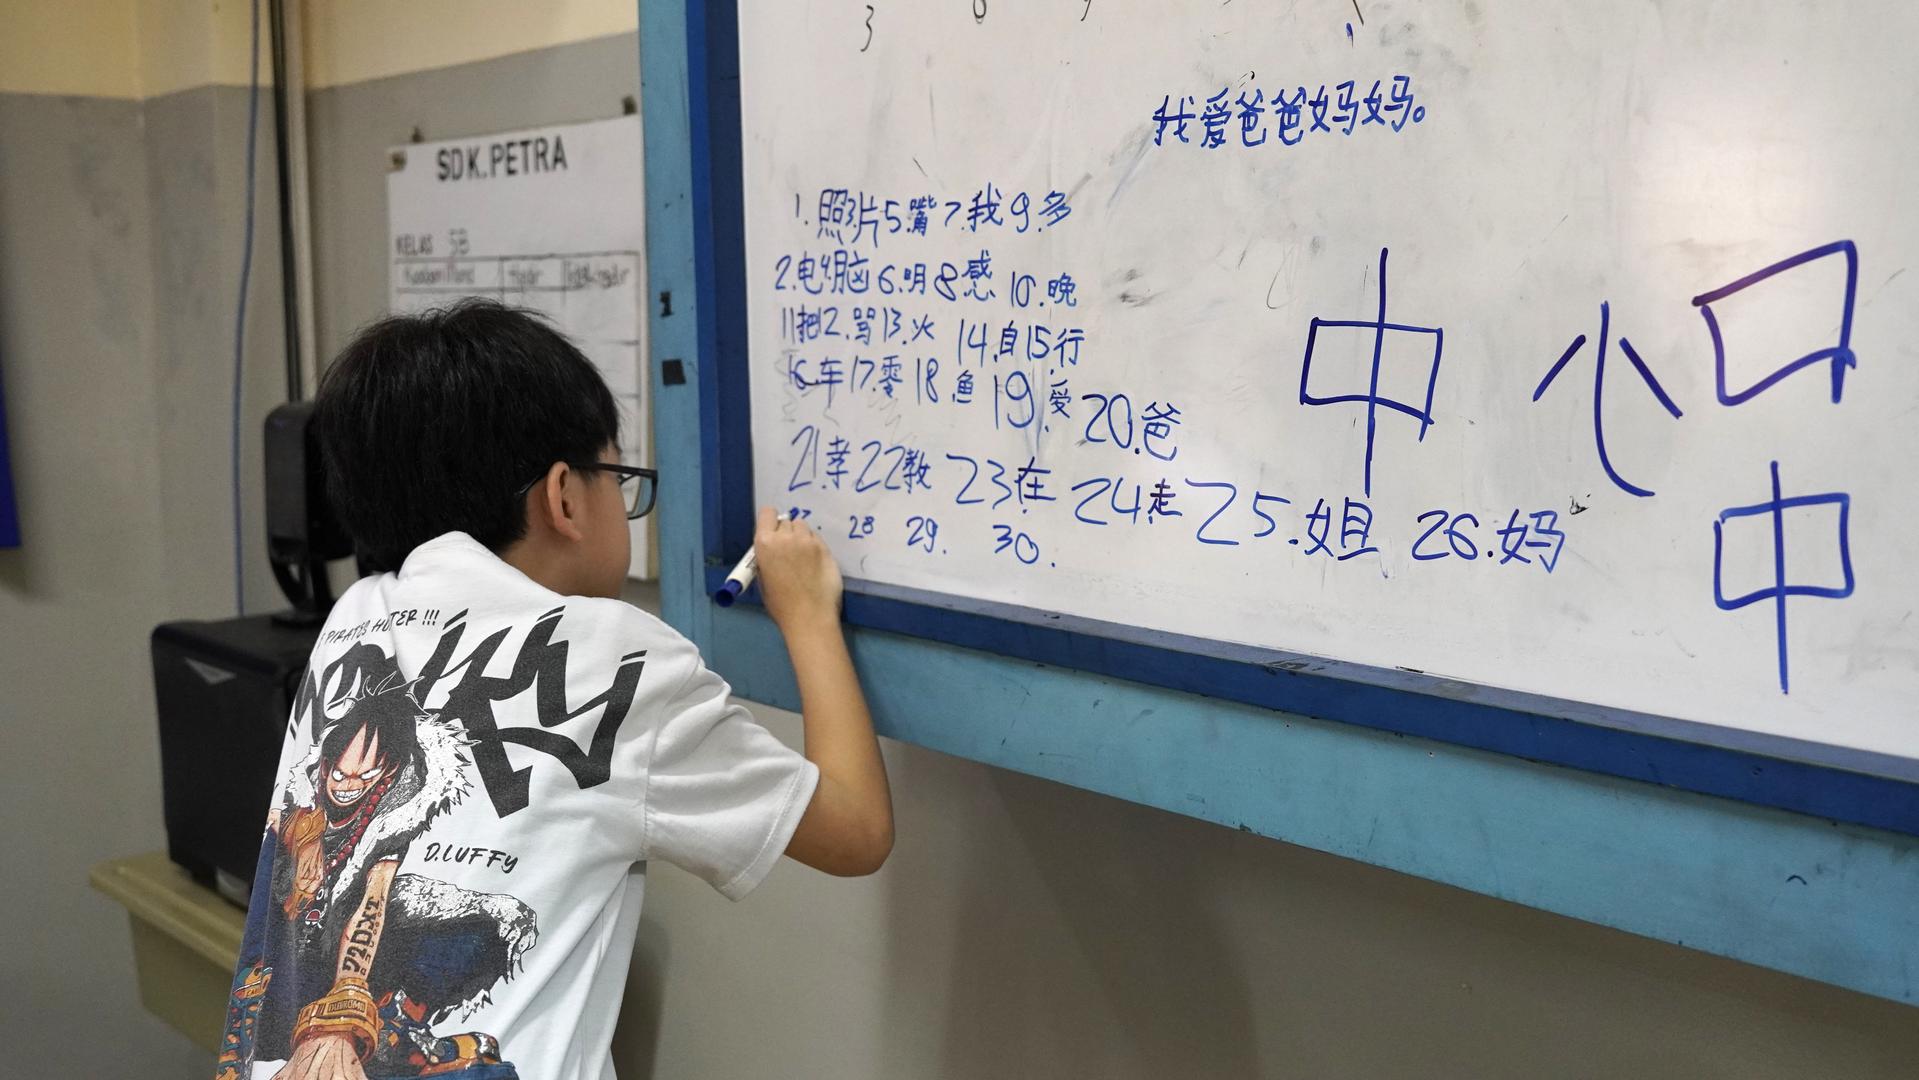 SDK.PETRA
KELAS 5B
3
我爱爸爸妈妈。
1.照 3.片 5.嘴 7.我 9.多
2.电 4.脑 6.明 8.感 10.晚
11把 12.骂 13.火 14.自 15.行
16.车 17.零 18.鱼 19.爱 20.爸
21.孝 22教 23.在 24.走 25.姐 26.妈
28 29. 30.
中 心 口
中
PIRATES HUTER !!!
D.LUFFY